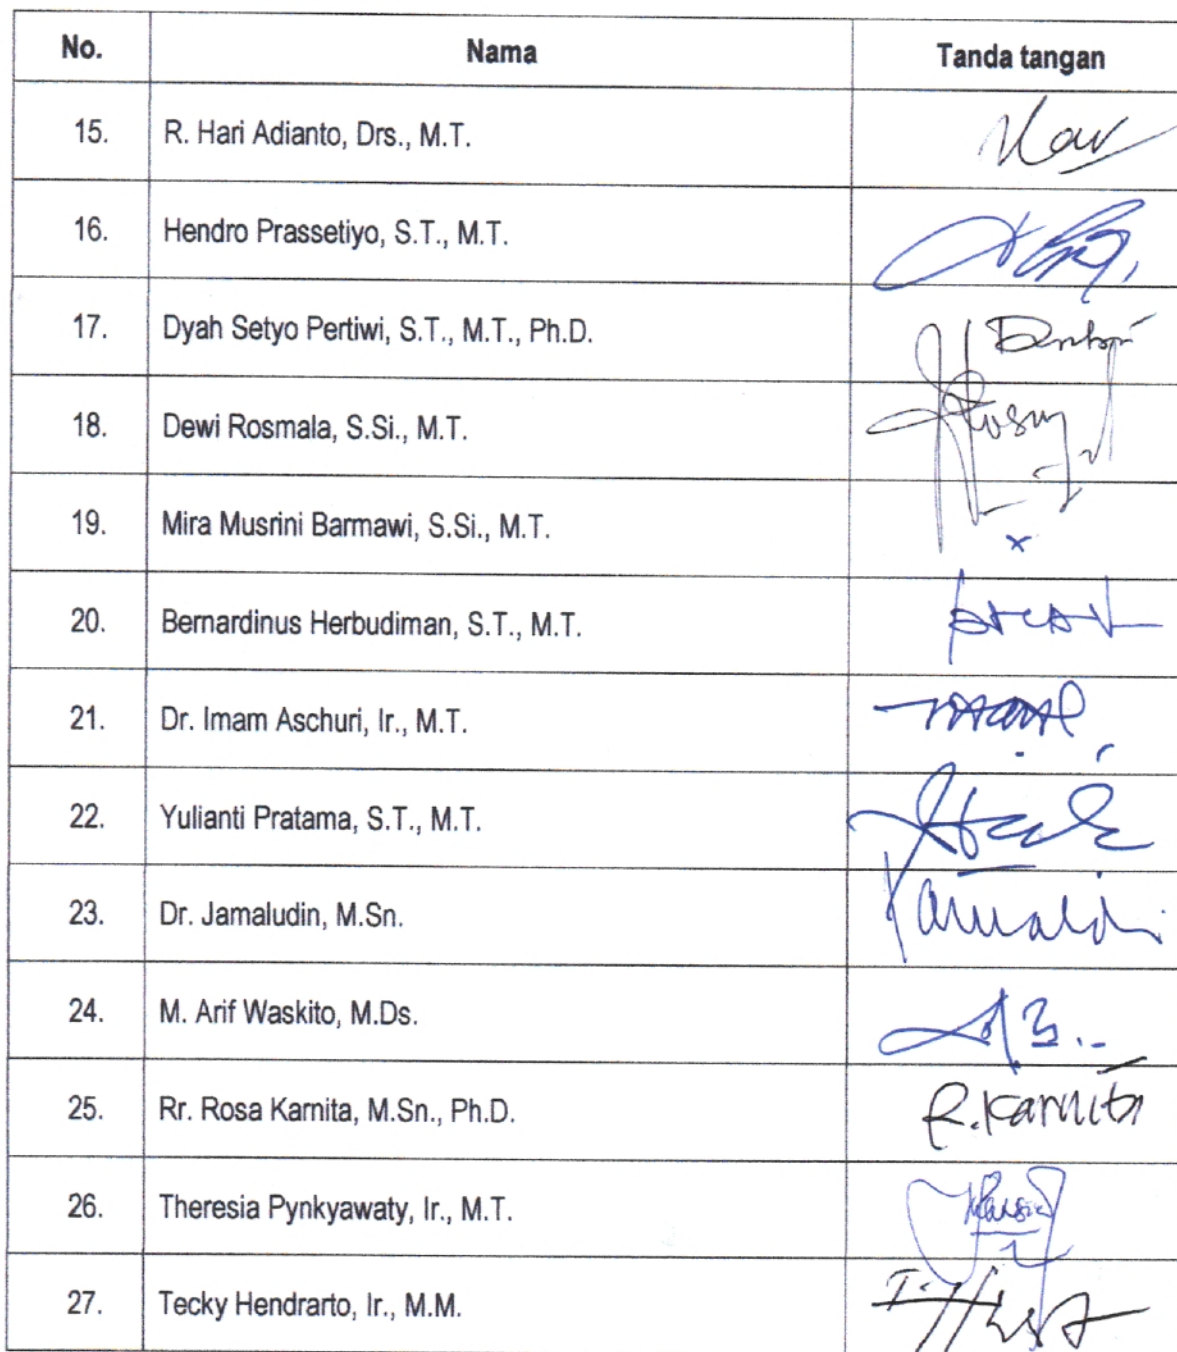 No. Nama Tanda tangan
15. R. Hari Adianto, Drs., M.T.
16. Hendro Prassetiyo, S.T., M.T.
17. Dyah Setyo Pertiwi, S.T., M.T., Ph.D.
18. Dewi Rosmala, S.Si., M.T.
19. Mira Musrini Barmawi, S.Si., M.T. x
20. Bernardinus Herbudiman, S.T., M.T.
21. Dr. Imam Aschuri, Ir., M.T.
22. Yulianti Pratama, S.T., M.T.
23. Dr. Jamaludin, M.Sn.
24. M. Arif Waskito, M.Ds.
25. Rr. Rosa Karnita, M.Sn., Ph.D. R.Karnita
26. Theresia Pynkyawaty, Ir., M.T.
27. Tecky Hendrarto, Ir., M.M.